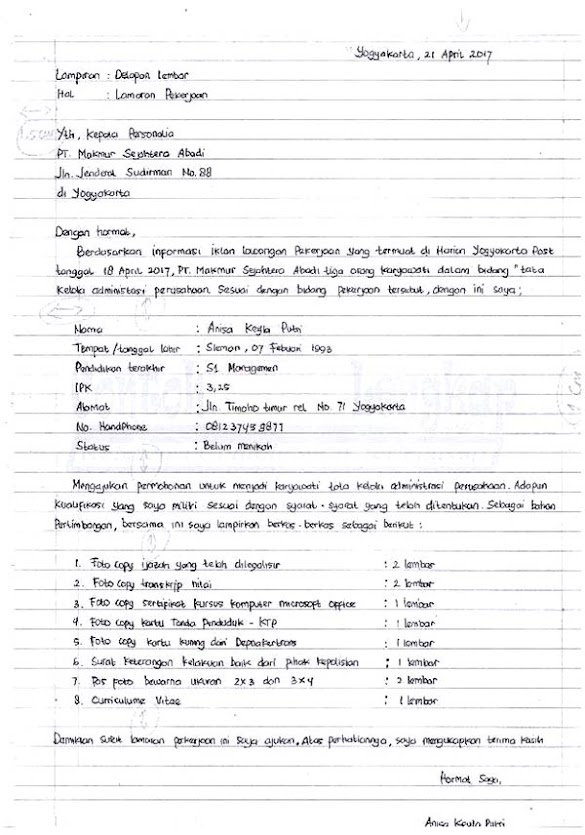 Yogyakarta, 21 April 2017
Lampiran : Delapan lembar
Hal : Lamaran Pekerjaan
Yth, Kepala Personalia
PT. Makmur Sejahtera Abadi
Jln. Jenderal Sudirman No. 88
di Yogyakarta
Dengan hormat,
Berdasarkan informasi iklan lowongan Pekerjaan yang termuat di Harian Yogyakarta Post
tanggal 18 April 2017, PT. Makmur Sejahtera Abadi tiga orang karyawati dalam bidang "tata
kelola administasi perusahaan. Sesuai dengan bidang pekerjaan tersebut, dengan ini saya;
Nama : Anisa Keyla Putri
Tempat/tanggal lahir : Sleman, 07 Febuari 1993
Pendidikan terakhir : S1 Managemen
IPK : 3,25
Alamat : Jln. Timoho timur rel No. 71 Yogyakarta
No. Handphone :
Status : Belum menikah
Mengajukan permohonan untuk menjadi karyawati tata kelola administrasi perusahaan. Adapun
kualifikasi yang saya miliki sesuai dengan syarat-syarat yang telah ditentukan. Sebagai bahan
Pertimbangan, bersama ini saya lampirkan berkas-berkas sebagai berikut :
1. Foto copy ijazah yang telah dilegalisir : 2 lembar
2. Foto copy transkrip nilai : 2 lembar
3. Foto copy sertipikat kursus komputer microsopt office : 1 lembar
4. Foto copy kartu Tanda Penduduk - KTP : 1 lembar
5. Foto copy kartu kuning dari Depnakertrans : 1 lembar
6. Surat keterangan kelakuan baik dari pihak kepolisian : 1 lembar
7. Pas foto bewarna ukuran 2x3 dan 3x4 : 2 lembar
8. Curiculume Vitae : 1 lembar
Demikian surat lamaran perkerjaan ini saya ajukan, Atas perhatiannya, saya mengucapkan terima kasih
Hormat Saya,
Anisa Keyla Putri